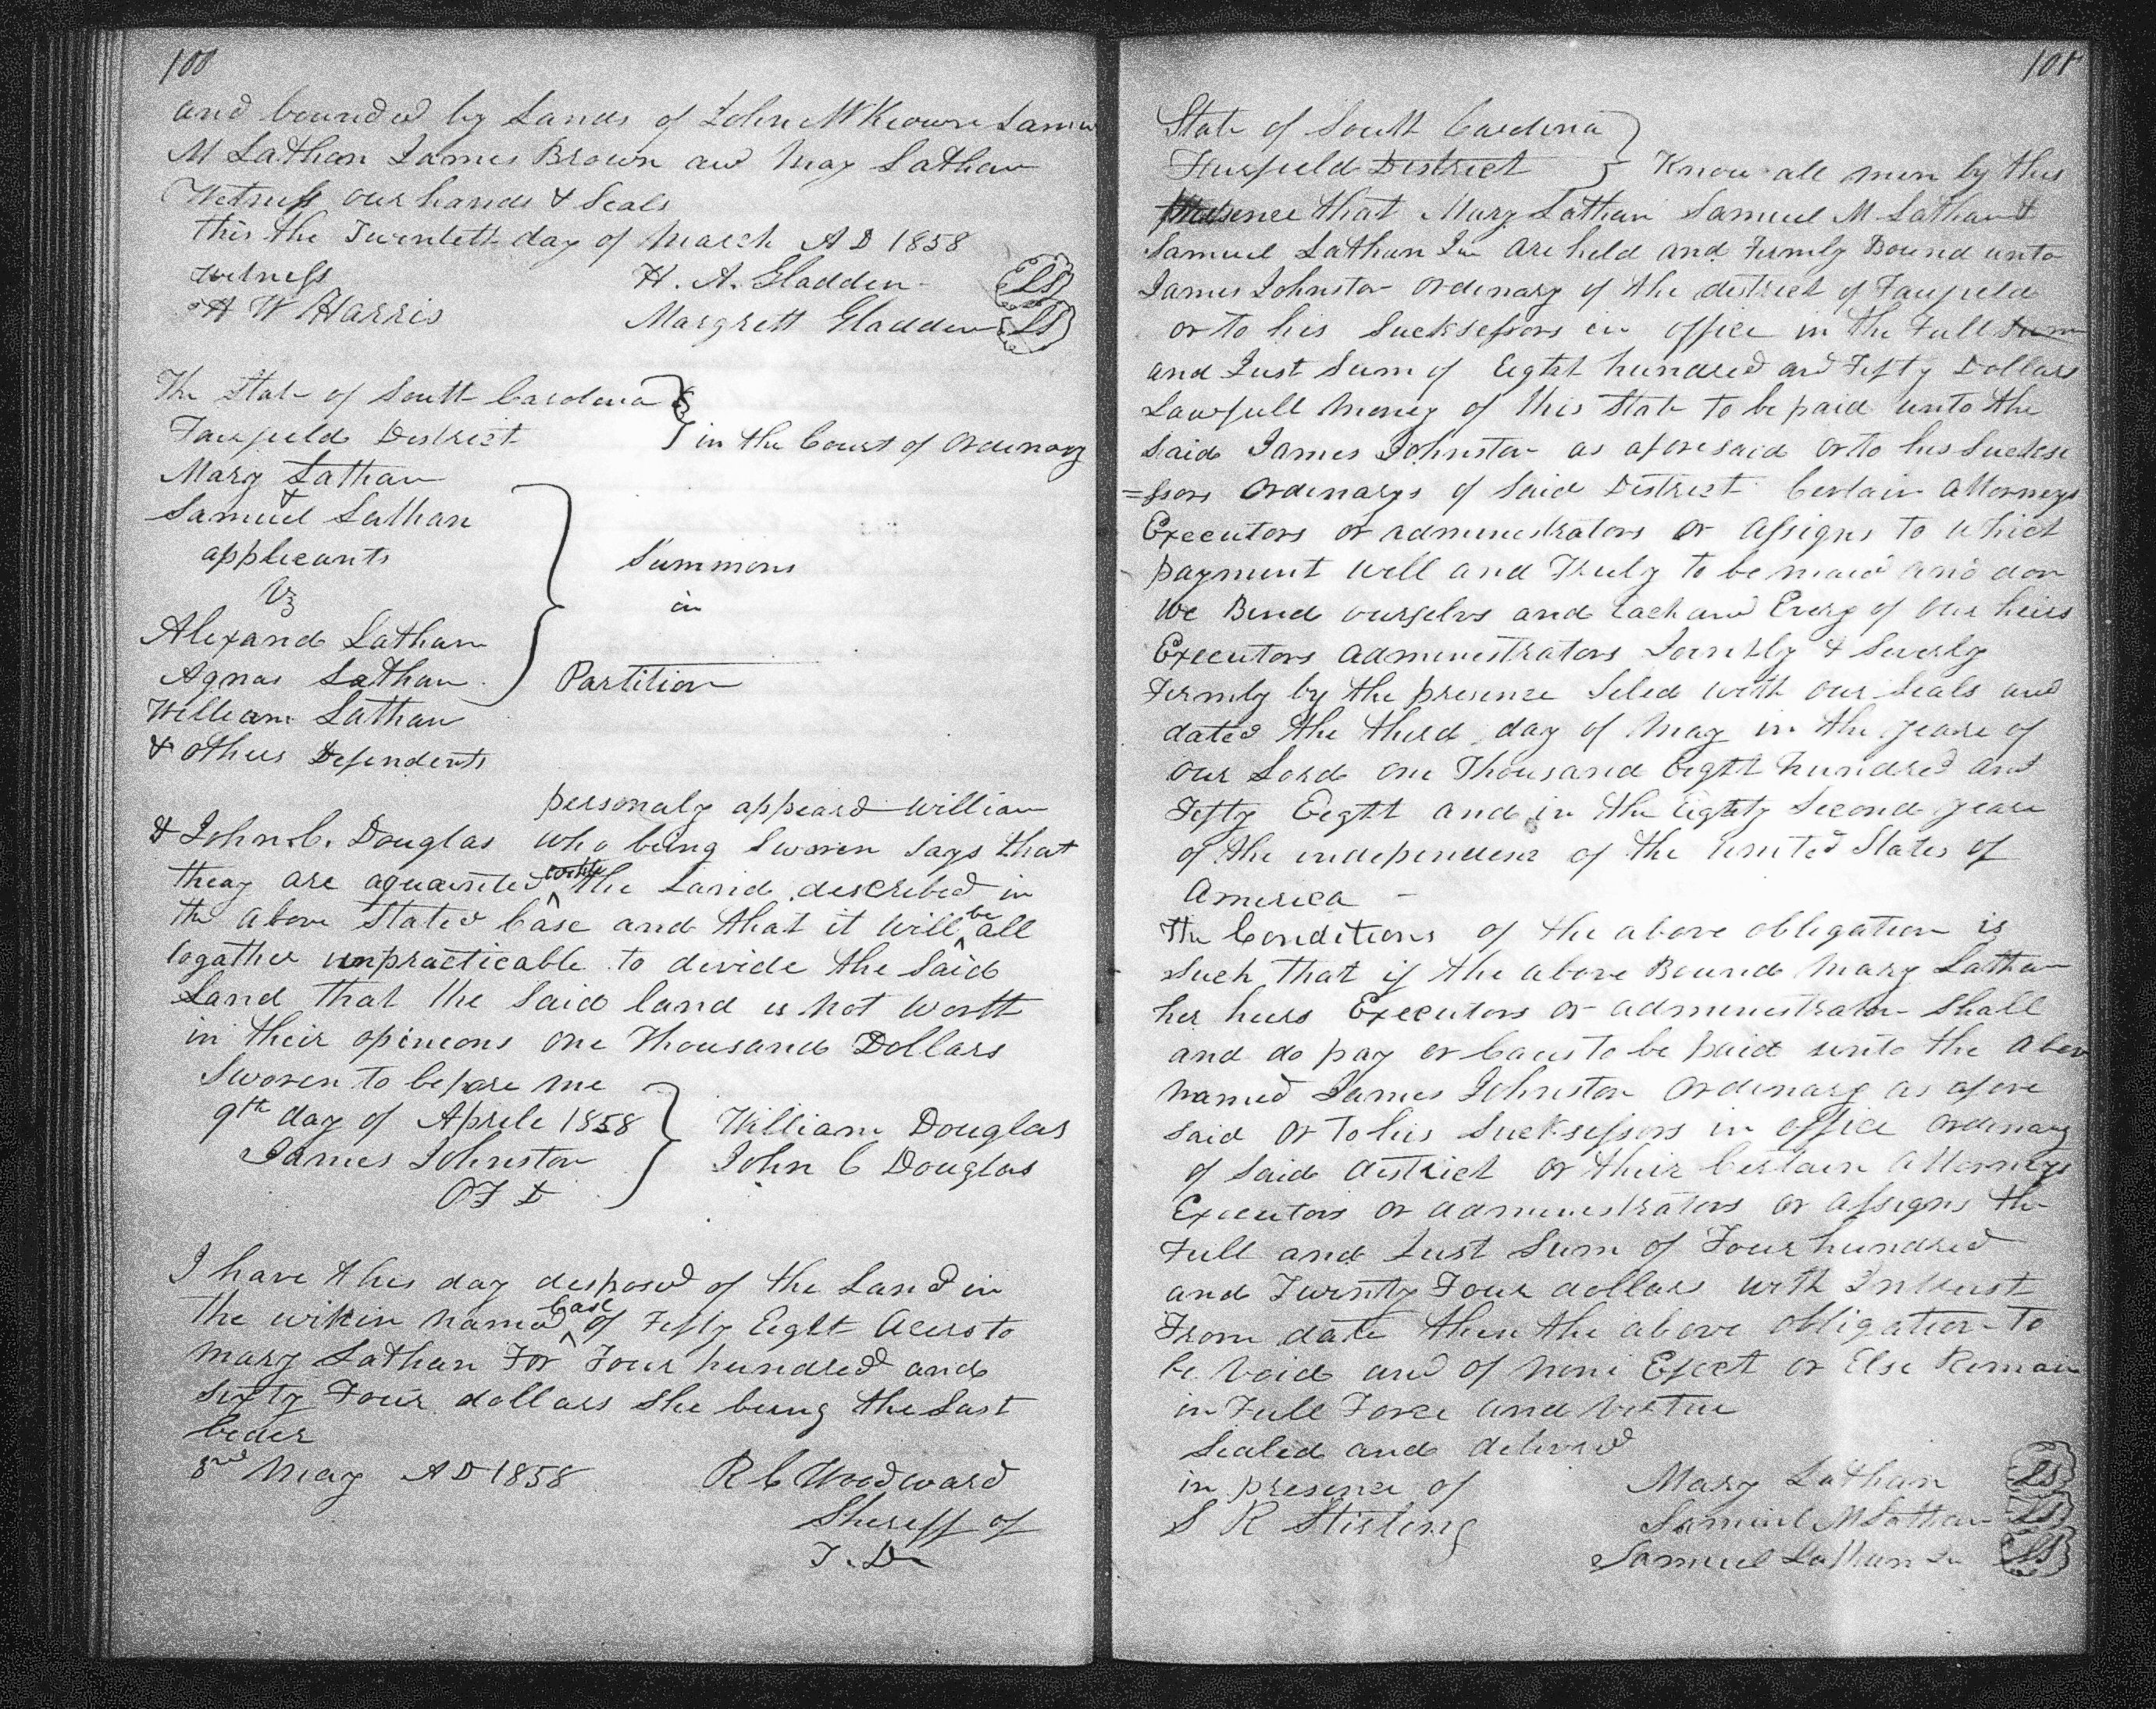 100
and bounded by Lands of John McKeown Samu
M Lathan James Brown and May Lathan
Witness our hands & Seals
this the Twentett day of March A D 1858
witness H. A. Gladden LS
A W Harris Margrett Gladden LS
The State of South Carolina
Fairfield District in the Court of Ordenary
Mary Lathan
&
Samuel Lathan
applicants
Vs
Alexand Lathan
Agnas Lathan
William Lathan
& others Defendents
Summons
in
Partition
personaly appeard William
& John C. Douglas who being Sworen says that
theay are aquainted withe the Land described in
the above Stated Case and that it will be all
togather unpracticable to devide the Said
Land that the Said land is not Worth
in their opineons one Thousand Dollars
Sworen to before me
9th day of Aprile 1858 William Douglas
James Johnston John C Douglas
O F D
I have this day desposed of the Land in
the within named Case of Fifty Eight Acers to
Mary Lathan For Four hundred and
Sixty Four dollars she being the Last
beder
3rd May A D 1858 R C Woodward
Sheriff of
F. D
101
State of South Carolina
Fairfield District Know all men by this
presence that Mary Lathan Samuel M Lathan &
Samuel Lathan Jn are held and Firmly Bound unto
James Johnston Ordenary of the district of Fairfield
or to his Sucksessors in office in the Full Sum
and Just Sum of Eight hundred and Fifty Dollars
Lawfull Money of this State to be paid unto the
Said James Johnston as aforesaid or to his Suckse
=ssors Ordenarys of Said District Certain Attorneys
Executors or administrators or Assigns to which
payment well and Truly to be maid and don
We Bind ourselvs and each and Every of our heirs
Executors administrators Jointly & Severly
Firmly by the presence Seled with our Seals and
dated the therd day of May in the yeare of
our Lord one Thousand Eight hundred and
Fifty Eight and in the Eighty Second yeare
of the independence of the United States of
America -
The Conditions of the above obligation is
such that if the above Bound Mary Lathan
her heirs Executors or administrator Shall
and do pay or Caus to be paid unto the Abov
named James Johnston Ordenary as afore
Said or to his Sucksessors in office Ordenary
of Said district or their Certain Attorneys
Executors or administrators or Assigns the
Full and Just Sum of Four hundred
and Twenty Four dollars with Intrust
From date then the above obligation to
be Void and of none Efect or Else Reman
in Full Force and Virtue
Sealed and delivred
in presence of Mary Lathan LS
S R Stirling Samuel M Lathan LS
Samuel Lathan Jn LS